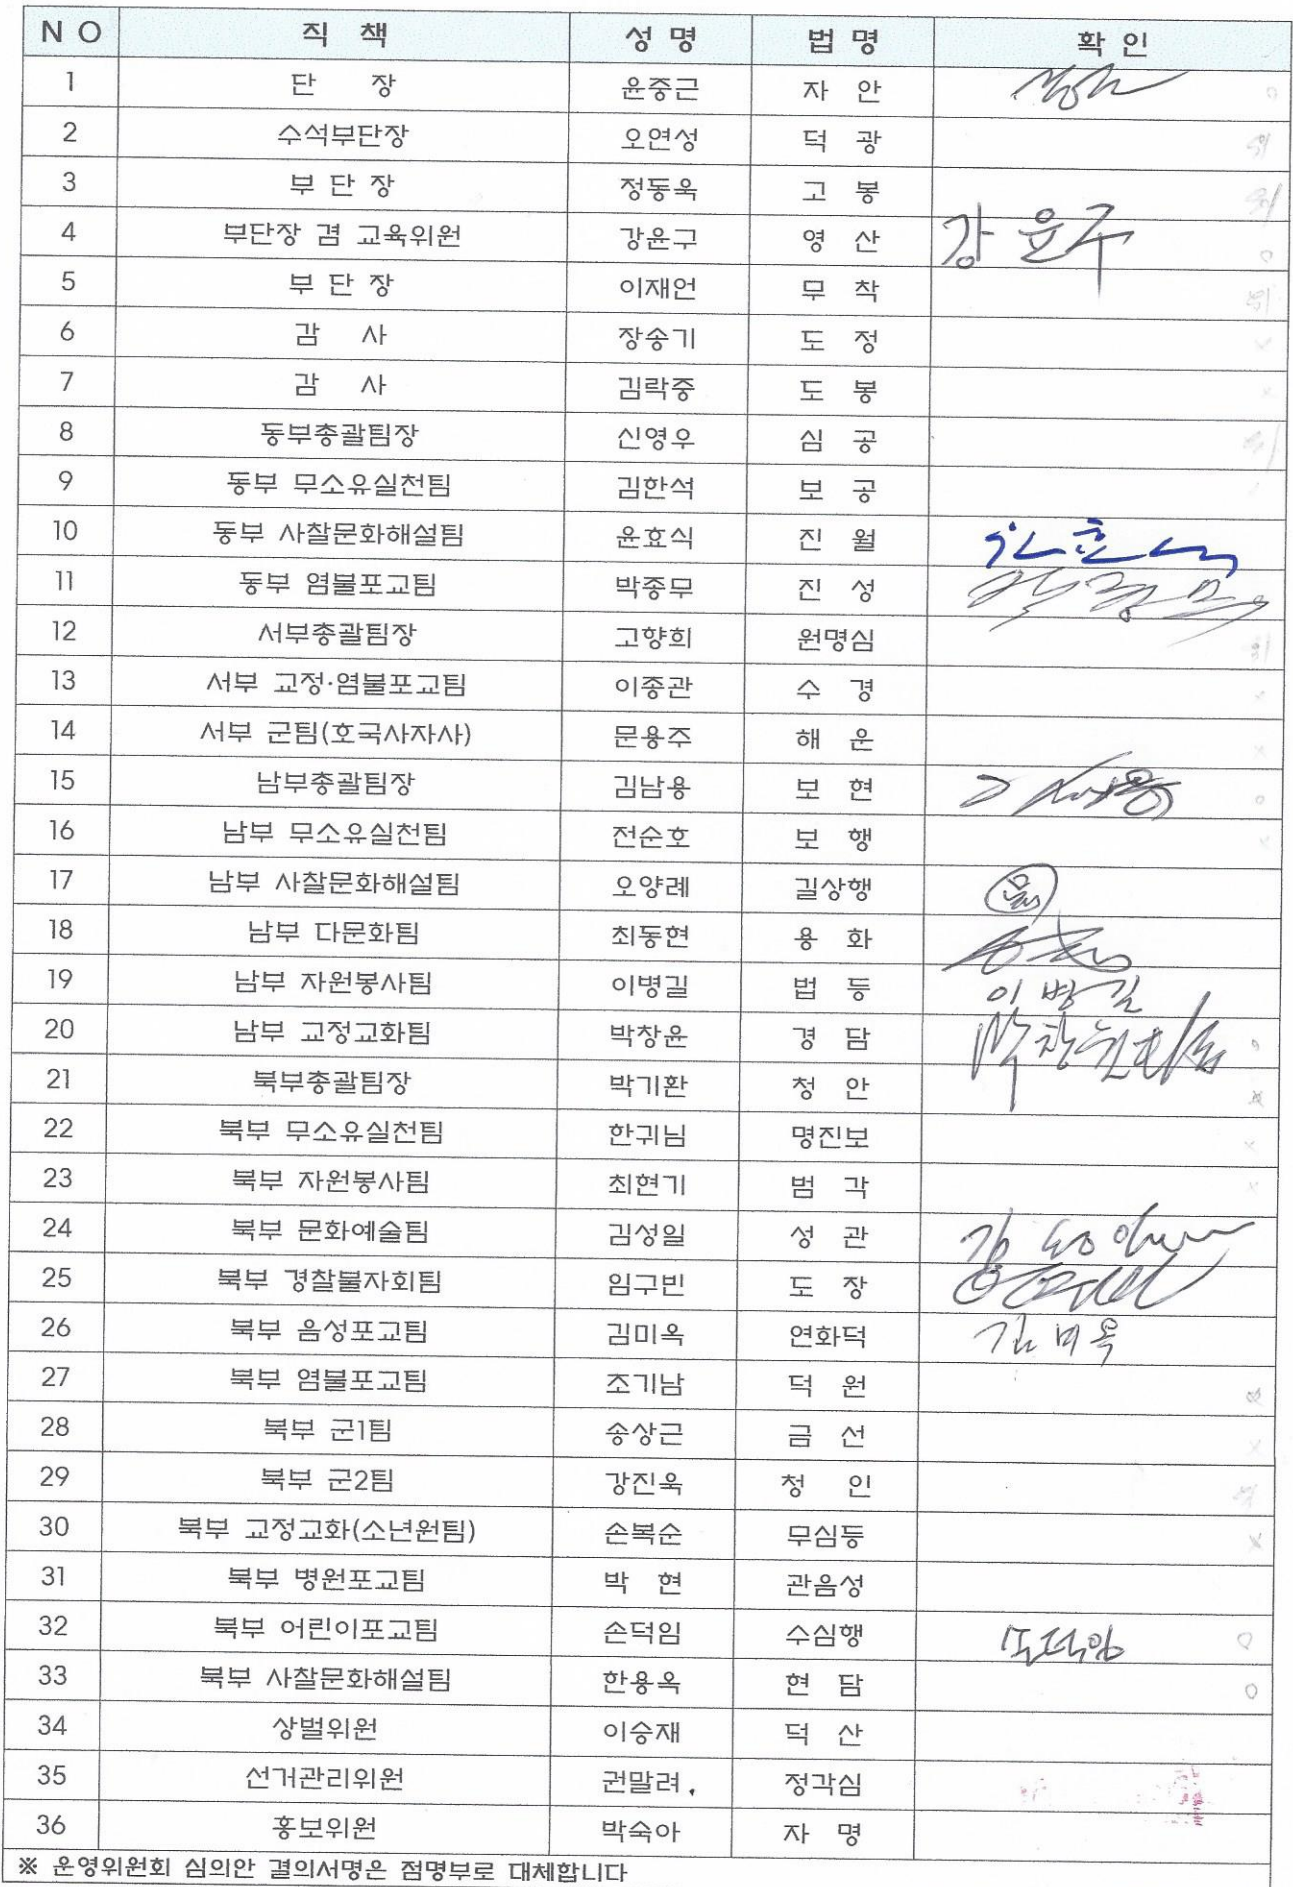 NO 직 책 성 명 법 명 확 인
1 단 장 윤중근 자 안
2 수석부단장 오연성 덕 광
3 부 단 장 정동욱 고 봉
4 부단장 겸 교육위원 강윤구 영 산 강윤구
5 부 단 장 이재언 무 착
6 감 사 장송기 도 정
7 감 사 김락중 도 봉
8 동부총괄팀장 신영우 심 공
9 동부 무소유실천팀 김한석 보 공
10 동부 사찰문화해설팀 윤효식 진 월
11 동부 염불포교팀 박종무 진 성
12 서부총괄팀장 고향희 원명심
13 서부 교정·염불포교팀 이종관 수 경
14 서부 군팀(호국사자사) 문용주 해 운
15 남부총괄팀장 김남용 보 현
16 남부 무소유실천팀 전순호 보 행
17 남부 사찰문화해설팀 오양례 길상행
18 남부 다문화팀 최동현 용 화
19 남부 자원봉사팀 이병길 법 등 이병길
20 남부 교정교화팀 박창윤 경 담
21 북부총괄팀장 박기환 청 안
22 북부 무소유실천팀 한귀님 명진보
23 북부 자원봉사팀 최현기 범 각
24 북부 문화예술팀 김성일 성 관
25 북부 경찰불자회팀 임구빈 도 장
26 북부 음성포교팀 김미옥 연화덕 김미옥
27 북부 염불포교팀 조기남 덕 원
28 북부 군1팀 송상근 금 선
29 북부 군2팀 강진욱 청 인
30 북부 교정교화(소년원팀) 손복순 무심등
31 북부 병원포교팀 박 현 관음성
32 북부 어린이포교팀 손덕임 수심행 손덕임
33 북부 사찰문화해설팀 한용옥 현 담
34 상벌위원 이승재 덕 산
35 선거관리위원 권말려. 정각심
36 홍보위원 박숙아 자 명
※ 운영위원회 심의안 결의서명은 점명부로 대체합니다